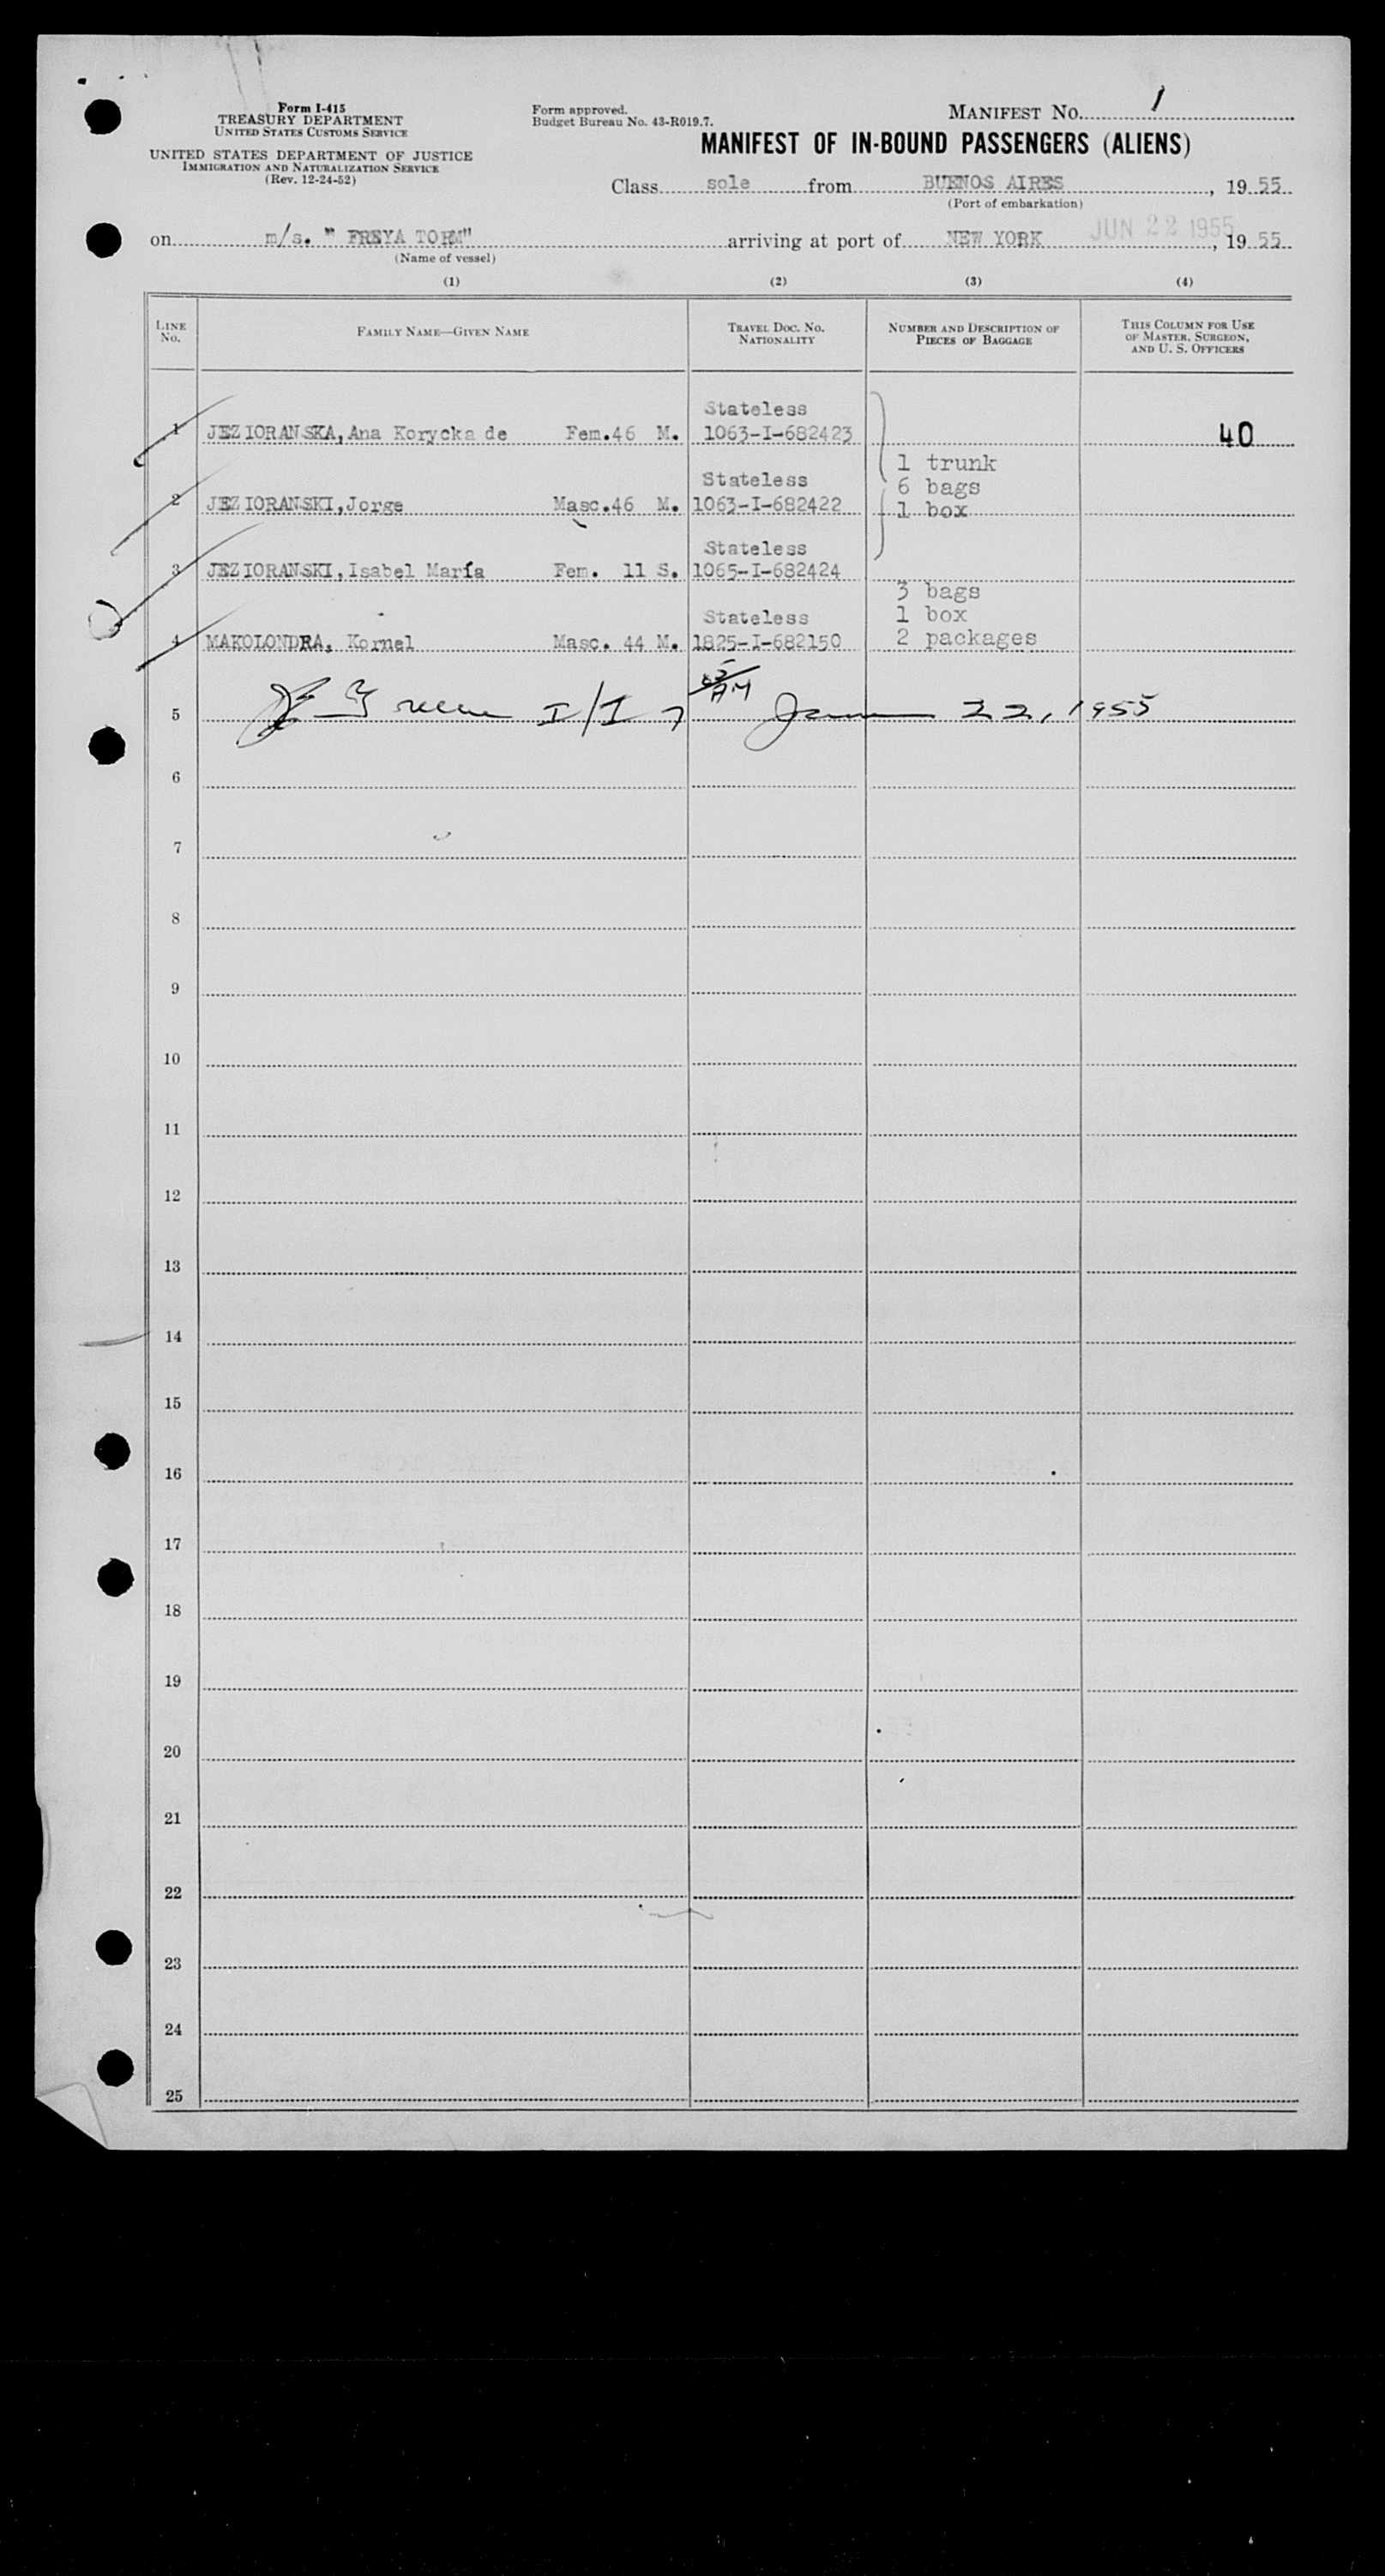 Form I-415
TREASURY DEPARTMENT
UNITED STATES CUSTOMS SERVICE
UNITED STATES DEPARTMENT OF JUSTICE
IMMIGRATION AND NATURALIZATION SERVICE
(Rev. 12-24-52)
Form approved.
Budget Bureau No. 43-R019.7.
MANIFEST NO. 1
MANIFEST OF IN-BOUND PASSENGERS (ALIENS)
Class sole from BUENOS AIRES, 19 55
(Port of embarkation)
on m/s. " FREYA TORM" arriving at port of NEW YORK JUN 22 1955, 19 55
(Name of vessel)
(1) (2) (3) (4)
LINE NO. FAMILY NAME—GIVEN NAME TRAVEL DOC. NO. NATIONALITY NUMBER AND DESCRIPTION OF PIECES OF BAGGAGE THIS COLUMN FOR USE OF MASTER, SURGEON, AND U. S. OFFICERS
Stateless
1 JEZIORANSKA, Ana Korycka de Fem. 46 M. 1063-I-682423 40
1 trunk
Stateless 6 bags
2 JEZIORANSKI, Jorge Masc. 46 M. 1063-I-682422 1 box
Stateless
3 JEZIORANSKI, Isabel María Fem. 11 S. 1065-I-682424
3 bags
Stateless 1 box
4 MAKOLONDRA, Kornel Masc. 44 M. 1825-I-682150 2 packages
5 I/I 22, 1955
6
7
8
9
10
11
12
13
14
15
16
17
18
19
20
21
22
23
24
25